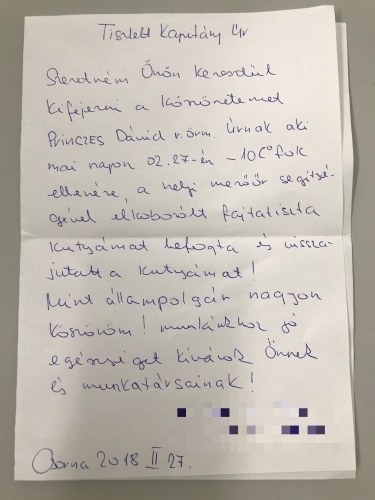 Tisztelt Kapitány Úr
Szeretném Önön keresztül
kifejezni a köszönetemet
Princzes Dávid r.őrm. Úrnak aki
mai napon 02.27-én -10 C° fok
ellenére, a helyi mezőőr segítsé-
gével elkóborólt fajtatiszta
kutyámat befogta és vissza-
jutatt a kutyámat!
Mint állampolgár nagyon
köszönöm! munkájukhoz jó
egészséget kívánok Önnek
és munkatársainak!
Csorna 2018 II 27.